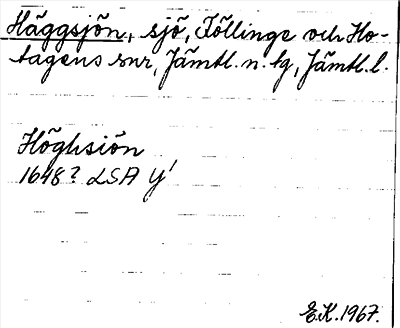 Häggsjön, sjö, Föllinge och Ho-
tagens snr, Jämtl. n. tg, Jämtl. l.
Höghsiön
1648? LSA Y'
E.K. 1967.